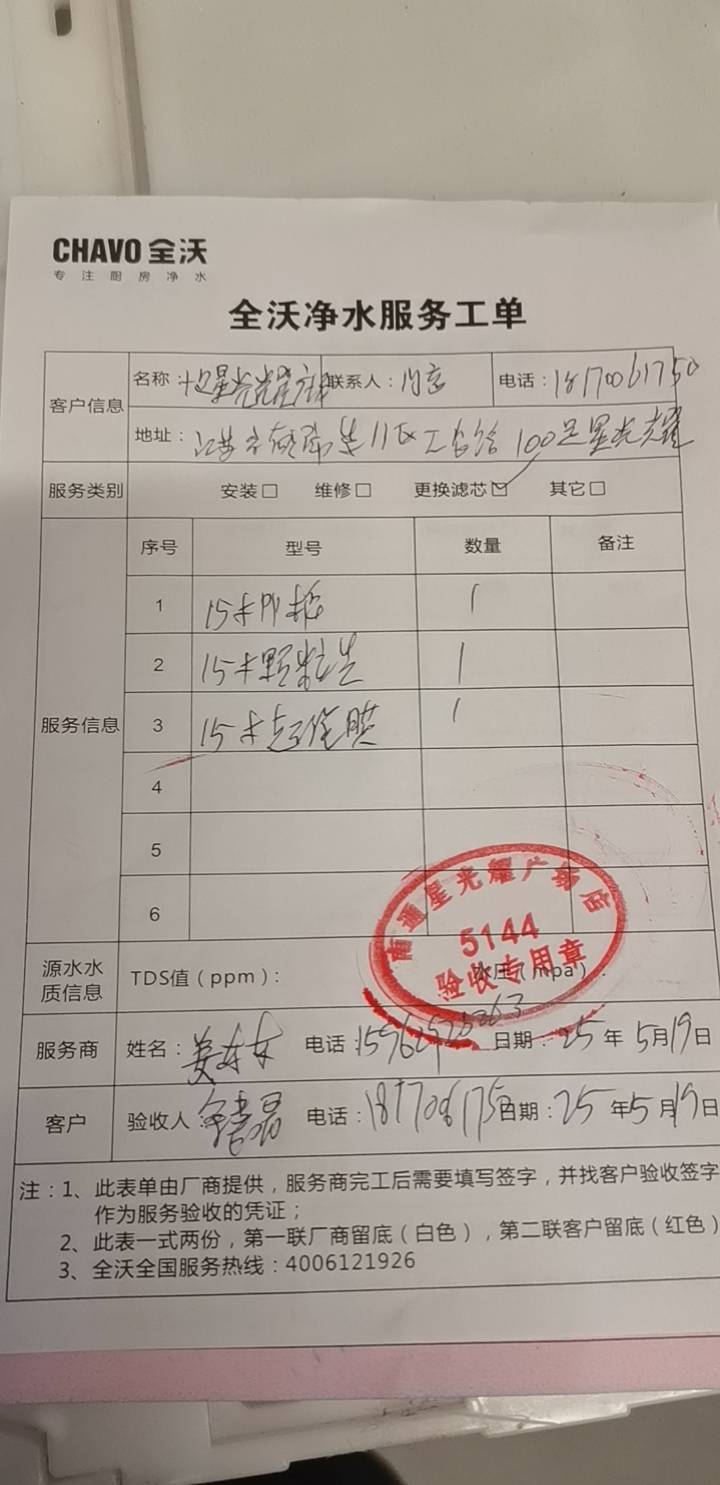 CHAVO 全沃
专注厨房净水
全沃净水服务工单
客户信息
名称: 星光耀 联系人: 电话:18170061750
地址: 江苏 100 星光耀
服务类别 安装□ 维修□ 更换滤芯☑ 其它□
服务信息
序号 型号 数量 备注
1 15寸PP棉 1
2 15寸颗粒 1
3 15寸超滤膜 1
4
5
6
南通星光耀广场店
5144
验收专用章
源水水质信息 TDS值(ppm): 水压(mpa):
服务商 姓名: 电话: 日期:25年5月19日
客户 验收人: 电话: 日期:25年5月19日
注:1、此表单由厂商提供,服务商完工后需要填写签字,并找客户验收签字
作为服务验收的凭证;
2、此表一式两份,第一联厂商留底(白色),第二联客户留底(红色)
3、全沃全国服务热线:4006121926